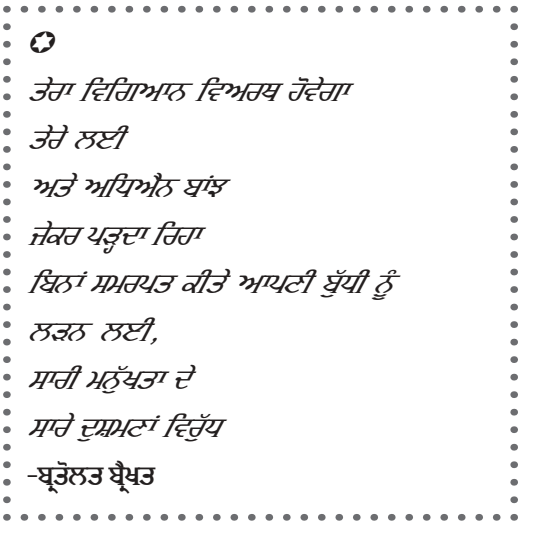 ✪
ਤੇਰਾ ਵਿਗਿਆਨ ਵਿਅਰਥ ਹੋਵੇਗਾ
ਤੇਰੇ ਲਈ
ਅਤੇ ਅਧਿਐਨ ਬਾਂਝ
ਜੇਕਰ ਪੜ੍ਹਦਾ ਰਿਹਾ
ਬਿਨਾਂ ਸਮਰਪਤ ਕੀਤੇ ਆਪਣੀ ਬੁੱਧੀ ਨੂੰ
ਲੜਨ ਲਈ,
ਸਾਰੀ ਮਨੁੱਖਤਾ ਦੇ
ਸਾਰੇ ਦੁਸ਼ਮਣਾਂ ਵਿਰੁੱਧ
-ਬ੍ਰਤੋਲਤ ਬ੍ਰੈਖਤ